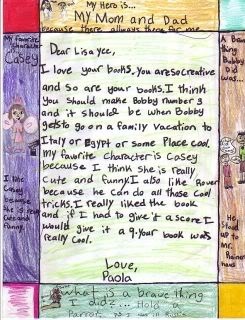 My Hero is...
My Mom and Dad
because there allways there for me.
My favorite
Character
Casey
I like
Casey
because
she is really
cute and
funny.
Dear Lisa yee,
I love your books. You are so creative
and so are your books. I think
you should make Bobby number 3
and it should be when Bobby
gets to go on a family vacation to
Italy or Egypt or some Place cool.
my favorite character is Casey
because I think she is really
cute and funny. I also like Rover
because he can do all those cool
tricks. I really liked the book
and if I had to give it a score I
would give it a 9. Your book was
really cool.
Love,
Paola
A Brave
thing
Bobby
Did was...
He
Stood
up to
mr.
What is a brave thing
I did?... Hold a
Parrot